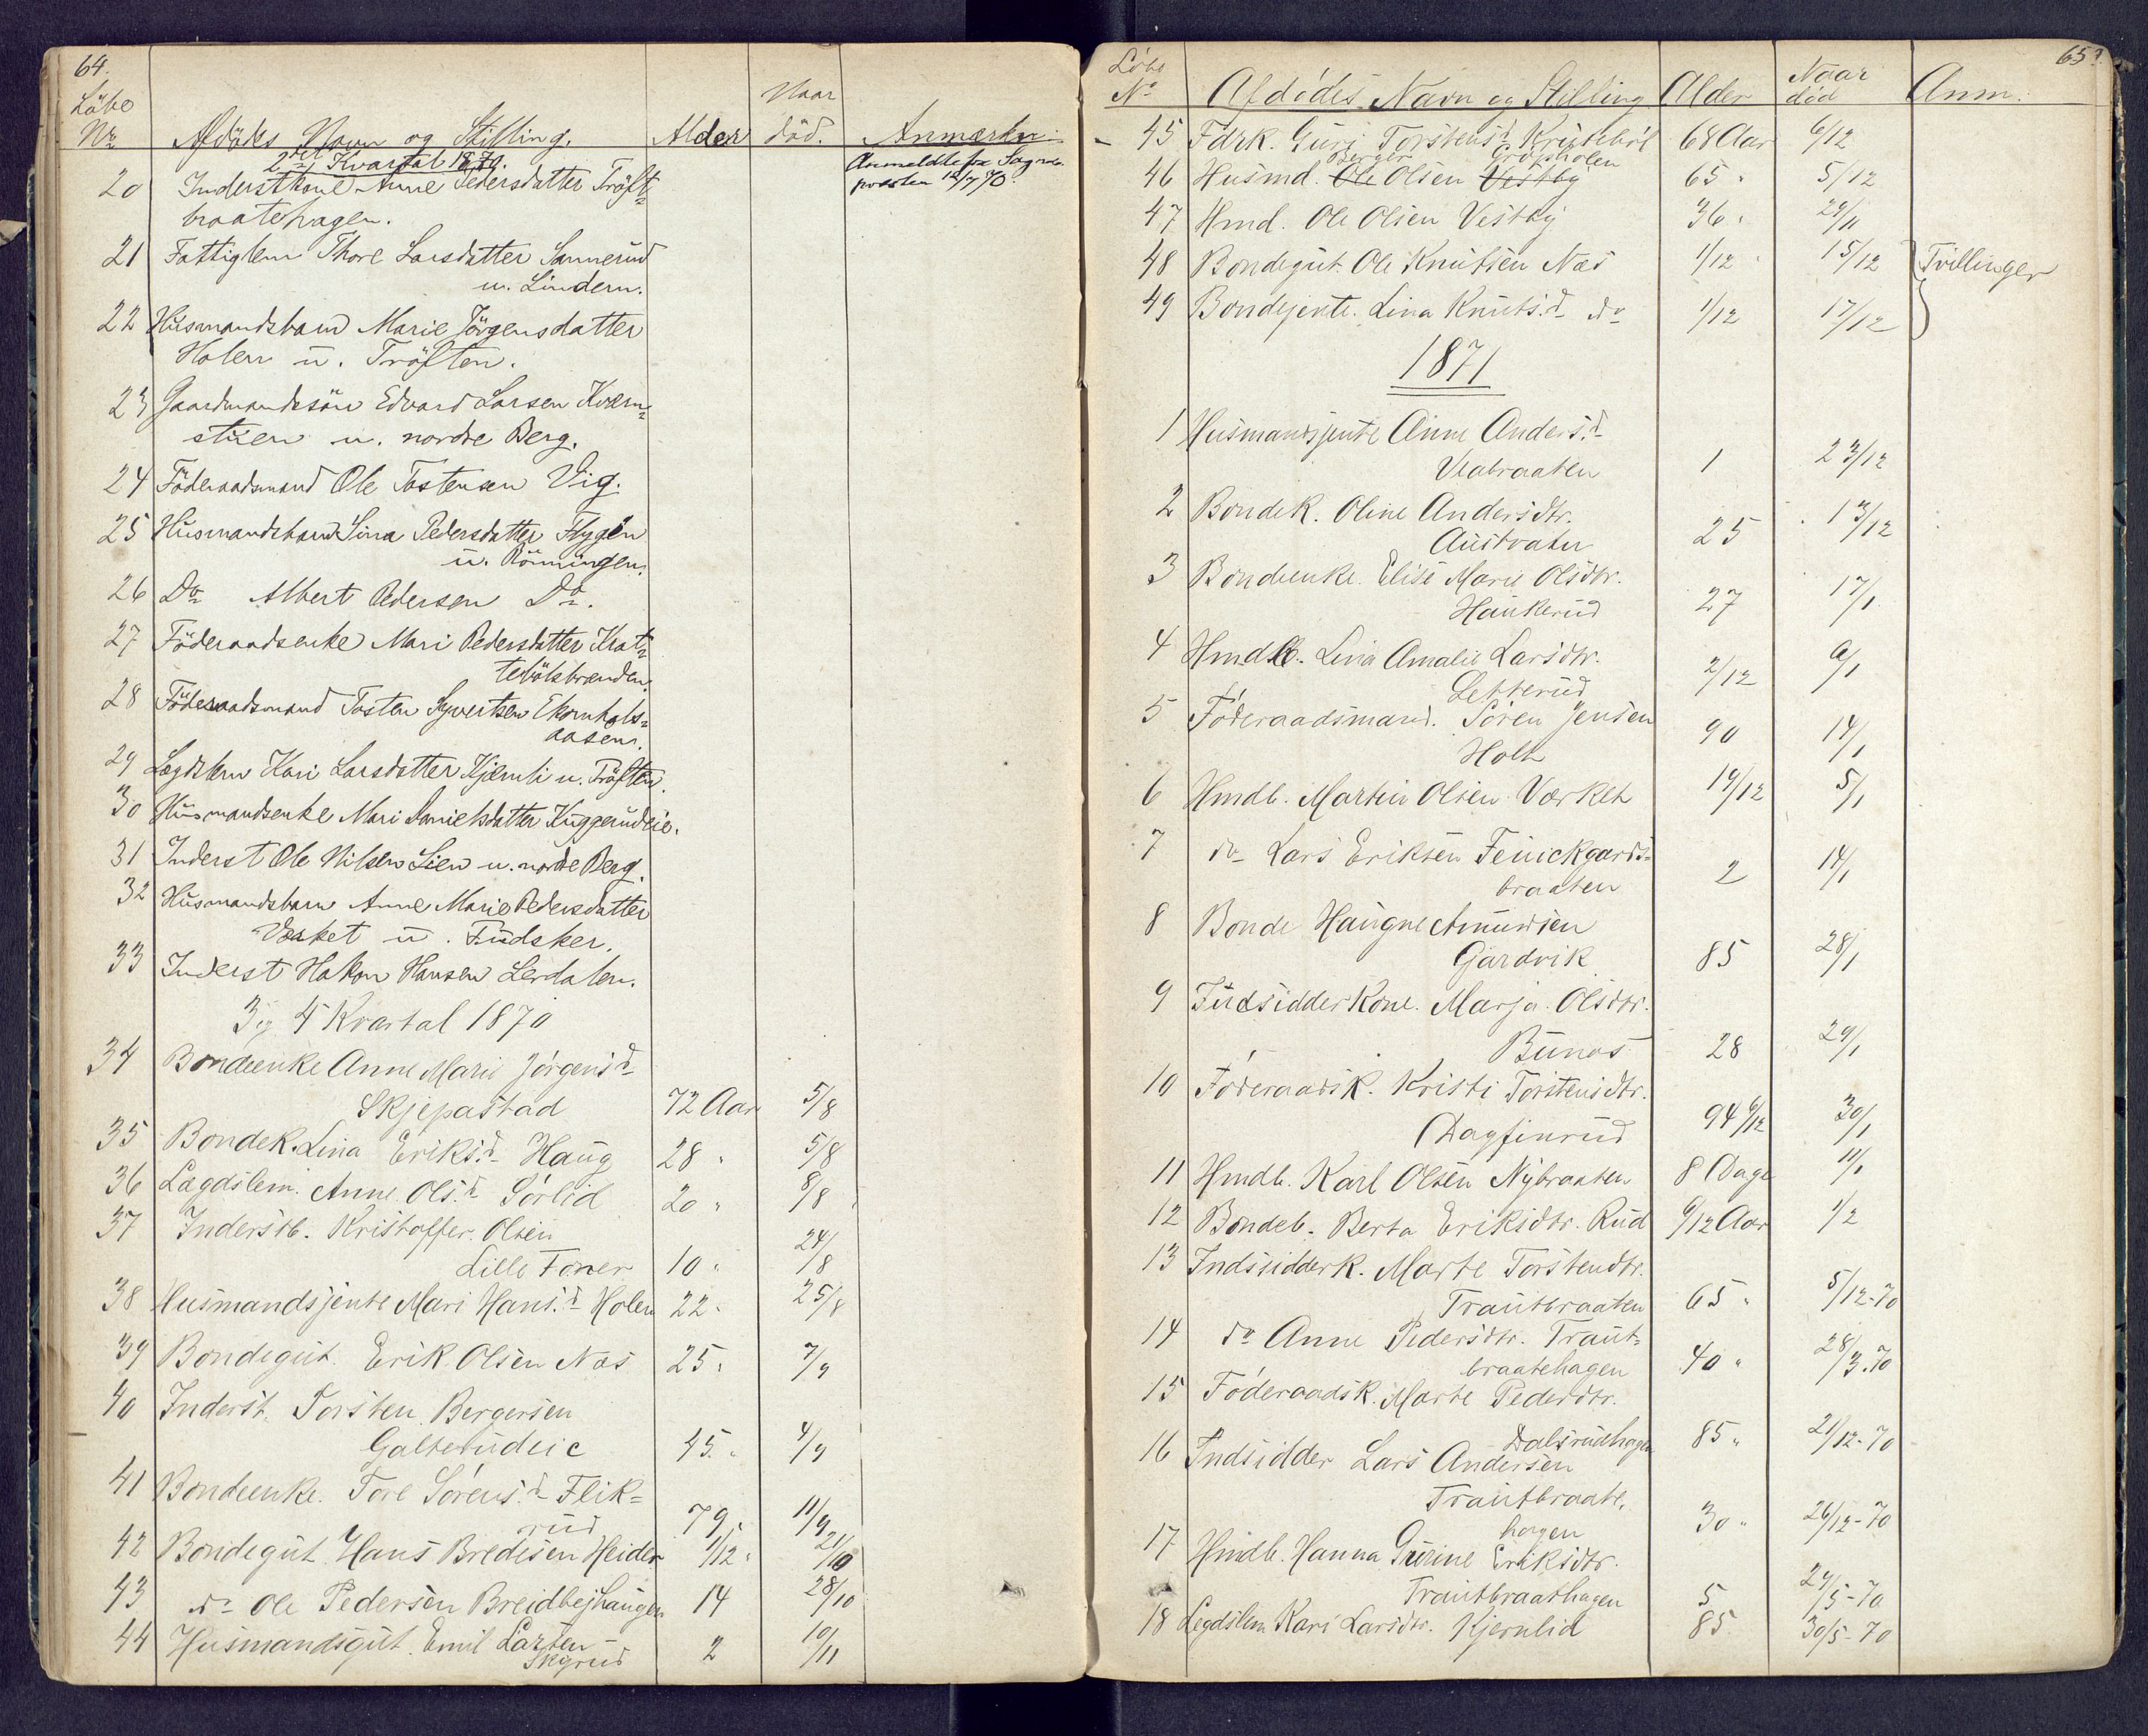 64.
Löbe
No Afdödes Navn og Stilling. Alder Naar död. Anmærkn.
2det Kvartal 1870. Anmeldte for Sogne-
20 Inderstkone Anne Pedersdatter Tröft- præsten 12/7 70.
braatehagen.
21 Fattiglem Thore Larsdatter Sannerud
u. Lindern.
22 Husmandsbarn Marie Jörgensdatter
Holen u. Tröften.
23 Gaardmandssön Edvard Larsen Kværn-
stuen u. nordre Berg.
24 Föderaadsmand Ole Tostensen Vig.
25 Husmandsbarn Lina Pedersdatter Flygen
u. Rönningen.
26 Do Albert Pedersen Do.
27 Föderaadsenke Mari Pedersdatter Krat-
tebölsbraaden.
28 Föderaadsmand Tosten Syvertsen Ekornhols-
aasen.
29 Lægdslem Kari Larsdatter Kjærnli u. Tröften.
30 Husmandsenke Mari Danielsdatter Kuggerudeie.
31 Inderst Ole Nilsen Lien u. nordre Berg.
32 Husmandsbarn Anne Marie Pedersdatter
Værket u. Fudsker.
33 Inderst Hakon Hansen Lerdalen.
3 og 4 Kvartal 1870
34 Bondeenke Anne Marie Jörgensd
Skjepastad 72 Aar 5/8
35 Bondek. Lina Eriksd Haug 28 " 5/8
36 Lægdslem. Anne Olsd Sörlid 20 " 8/8
37 Inderstb. Kristoffer Olsen
Lille Foner 10 " 24/8
38 Husmandsjente Mari Hansd Holen 22 " 25/8
39 Bondegut. Erik Olsen Næs 25 " 7/9
40 Inderst. Torsten Bergersen
Galterudeie 45 " 4/9
41 Bondeenke. Tore Sörensd Flik-
rud 79 " 11/9
42 Bondegut Hans Bredesen Heider 1/12 " 21/10
43 do Ole Pedersen Breidbejhaugen 14 28/10
44 Husmandsgut. Emil Larsen
Skgrud 2 10/11
65
Löbe
No Afdödes Navn og Stilling Alder Naar död Anm.
45 Fdrk. Guri Torstensd Kruteböl 68 Aar 6/12
Berger Gröpholen
46 Husmd. Ole Olsen Vestby 65 " 5/12
47 Hmd. Ole Olsen Vestby 36 " 29/11
48 Bondegut. Ole Knutsen Næs 1/12 " 15/12 Tvillinger
49 Bondejente. Lina Knuts.d do 1/12 17/12
1871
1 Husmandsjente Anne Anders.d
Vlabraaten 1 23/12
2 Bondek. Oline Andersdtr.
Austvatn 25 13/12
3 Bondeenke. Elise Marie Olsdtr.
Haukerud 27 17/1
4 Hmdb. Lina Amalie Larsdtr.
Letterud 2/12 9/1
5 Föderaadsmand. Sören Jensen
Holt 90 14/1
6 Hmdb. Martin Olsen Værket 19/12 5/1
7 do Lars Eriksen Feuickgards-
braaten 2 14/1
8 Bonde Haugne Amundsen
Gardvik 85 28/1
9 Indsidderkone. Marja Olsdtr.
Bunæs 28 29/1
10 Föderaadsk. Kristi Torstensdtr.
Dagfinrud 94 6/12 30/1
11 Hmdb. Karl Olsen Nybraaten 8 Dage 11/1
12 Bondeb. Berta Eriksdtr. Rud 9/12 Aar 1/2
13 Indsidderk. Marte Torstendtr.
Trautbraaten 65 " 5/12-70
14 do Anne Pedersdtr. Traut-
braatehagen 40 " 28/3.70
15 Föderaadsk. Marte Pederdtr.
Dalsrudhagen 85 " 21/12-70
16 Indsidder Lars Andersen
Trautbraate-
hagen 30 " 26/12-70
17 Hmdb. Hanna Gurine Eriksdtr.
Trautbraathagen 5 29/5-70
18 Legdslem Kari Larsdtr. Kjernlid 85 30/5-70